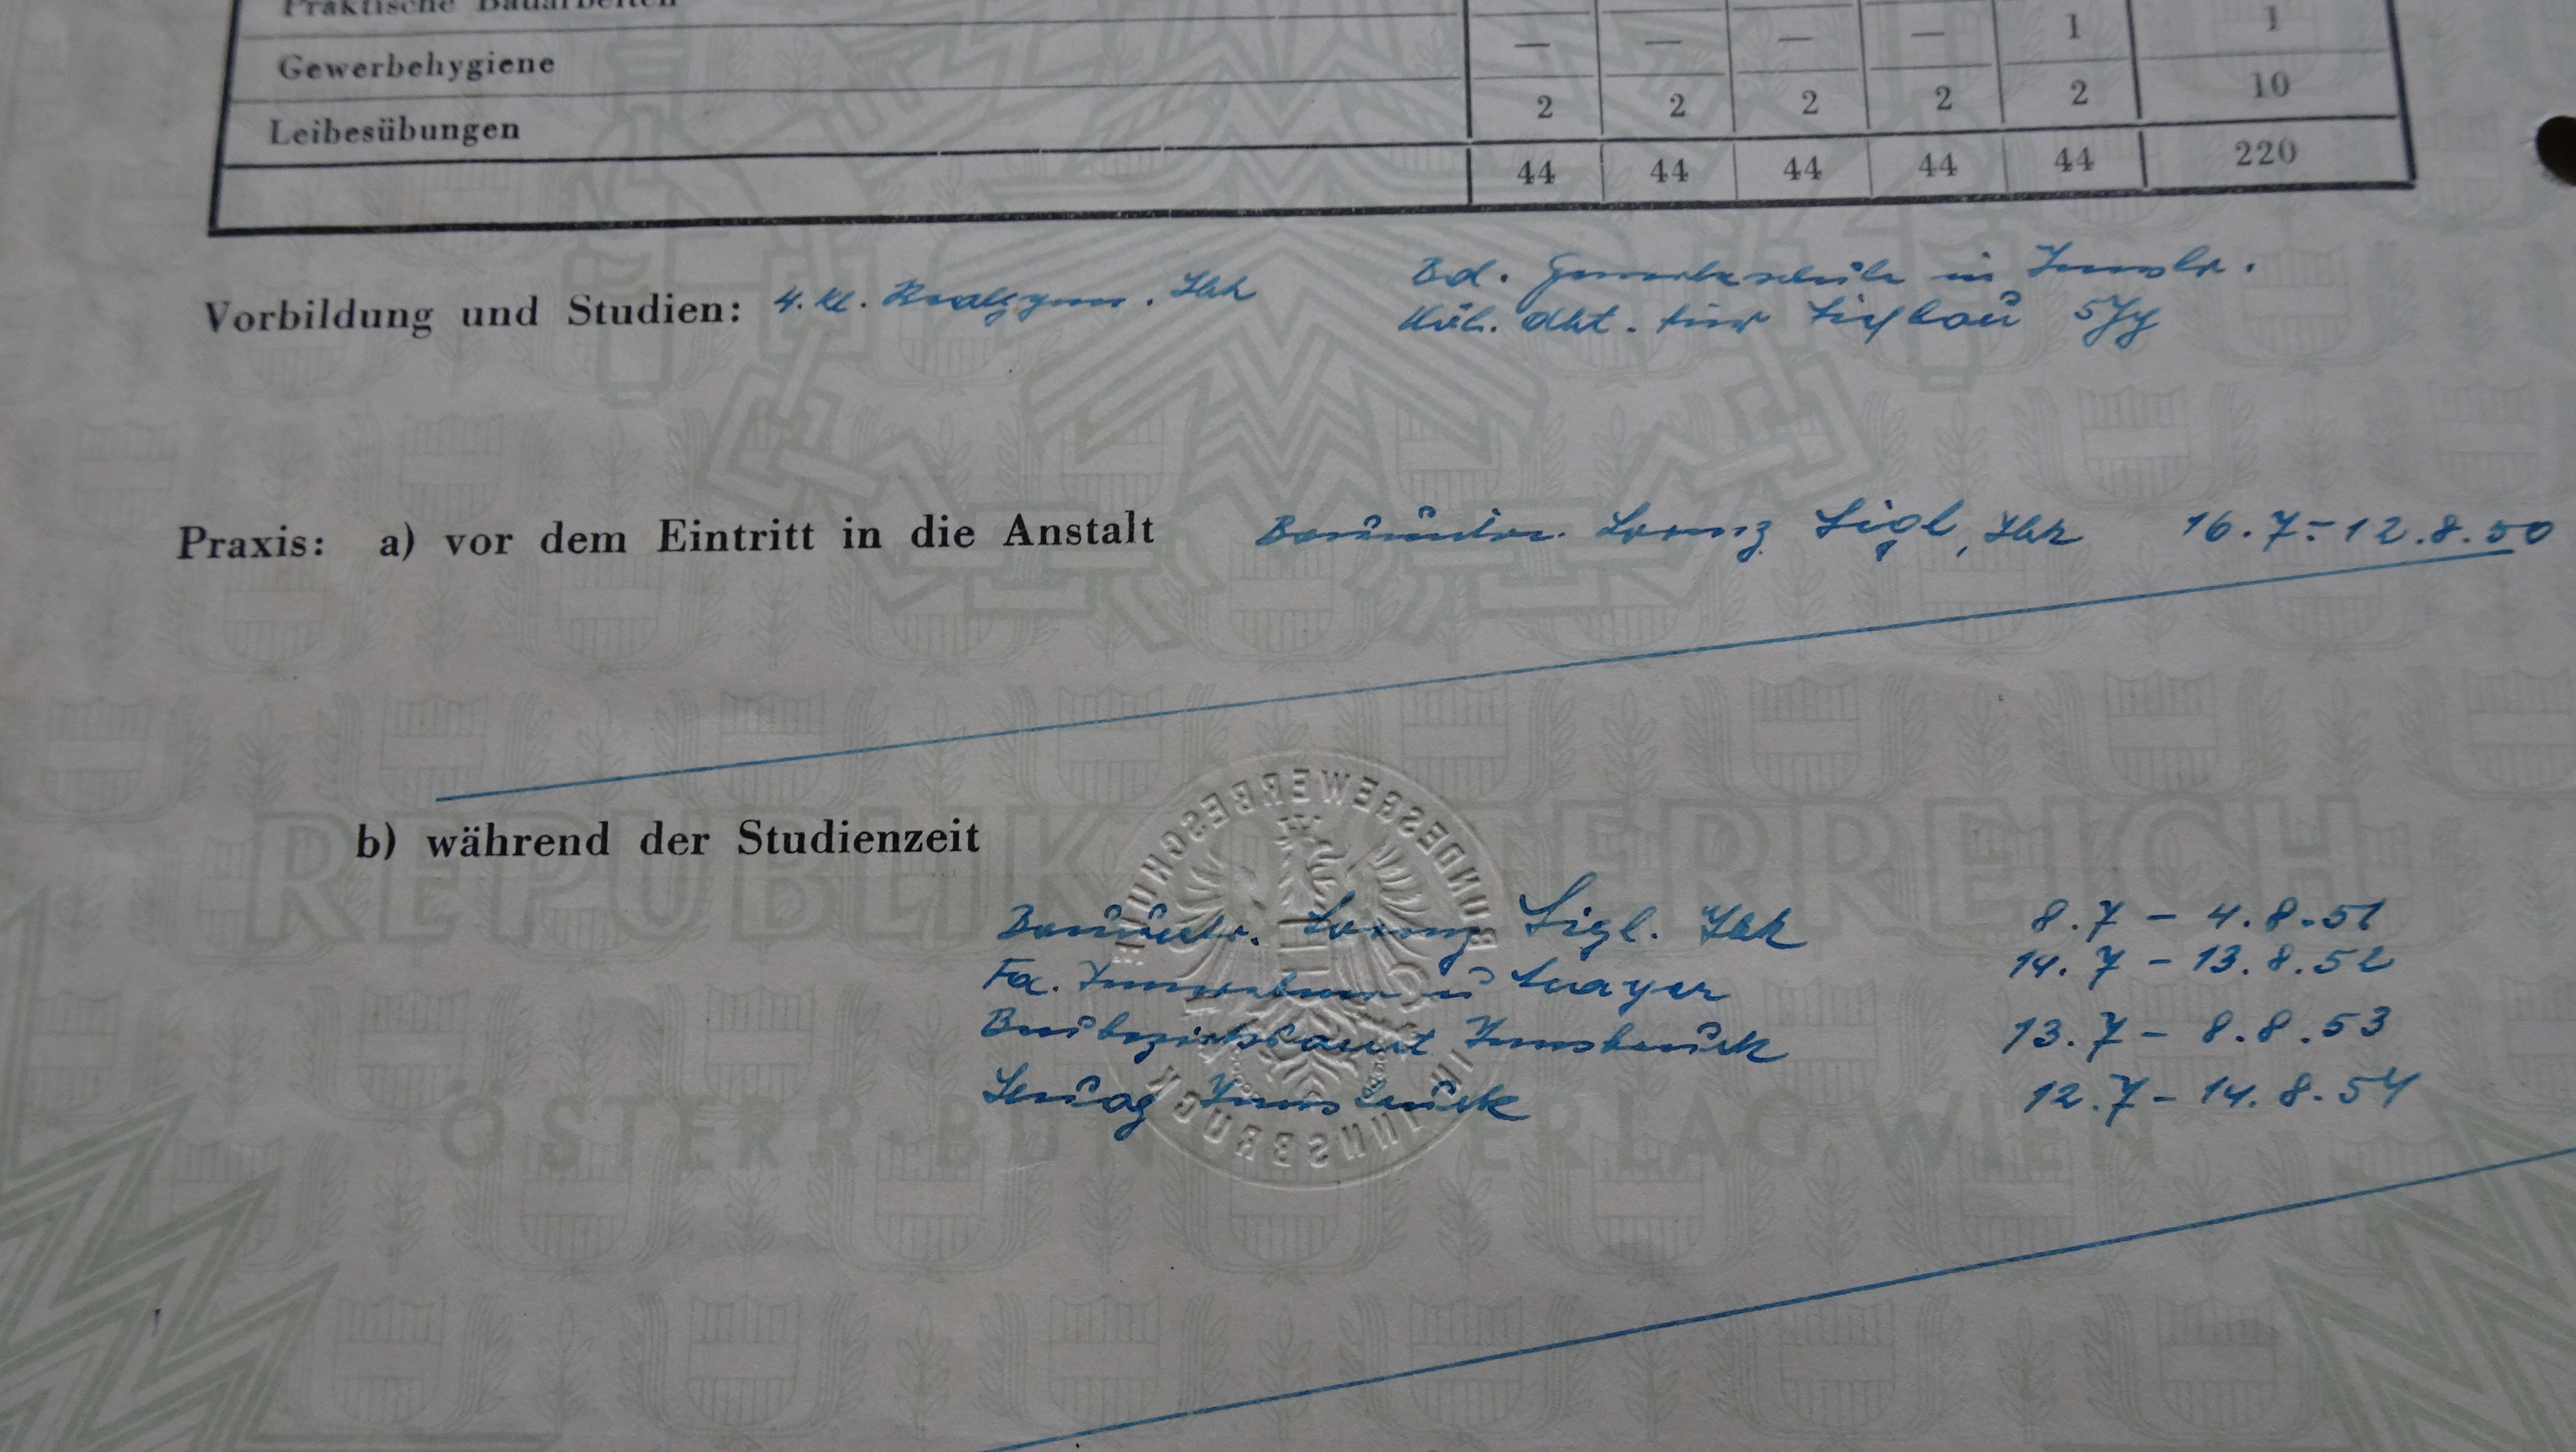 Praktische Bauarbeiten
Gewerbehygiene — — — — 1 1
Leibesübungen 2 2 2 2 2 10
44 44 44 44 44 220
Vorbildung und Studien: 4. Kl. Realgymn. Ibk
Bd. Gewerbeschule in Innsbr.
Abt. für Tiefbau
Praxis: a) vor dem Eintritt in die Anstalt Bauunter. Lorenz Sigl, Ibk 16.7.-12.8.50
BUNDESGEWERBESCHULE
REPUBLIK ÖSTERREICH
b) während der Studienzeit
Bauunter. Lorenz Sigl. Ibk 8.7 - 4.8.51
Fa. Innerebner u Mayer 14.7 - 13.8.52
Baubezirksamt Innsbruck 13.7 - 8.8.53
Innsbruck 12.7 - 14.8.54
IN INNSBRUCK
ÖSTERR. BUNDESVERLAG WIEN